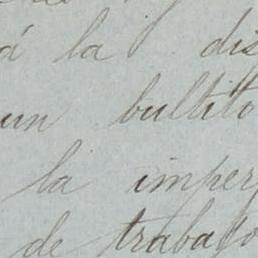 á la dis
un bultito
la imper
de trabajo